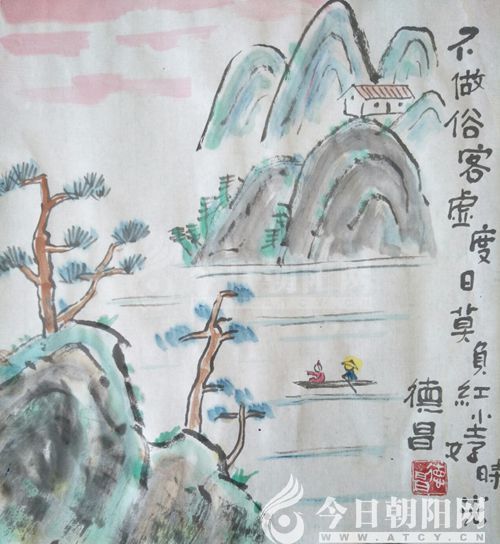 不做俗客虚度日莫负红尘好時光
德昌
德昌
今日朝阳网
WWW.ATCY.CN